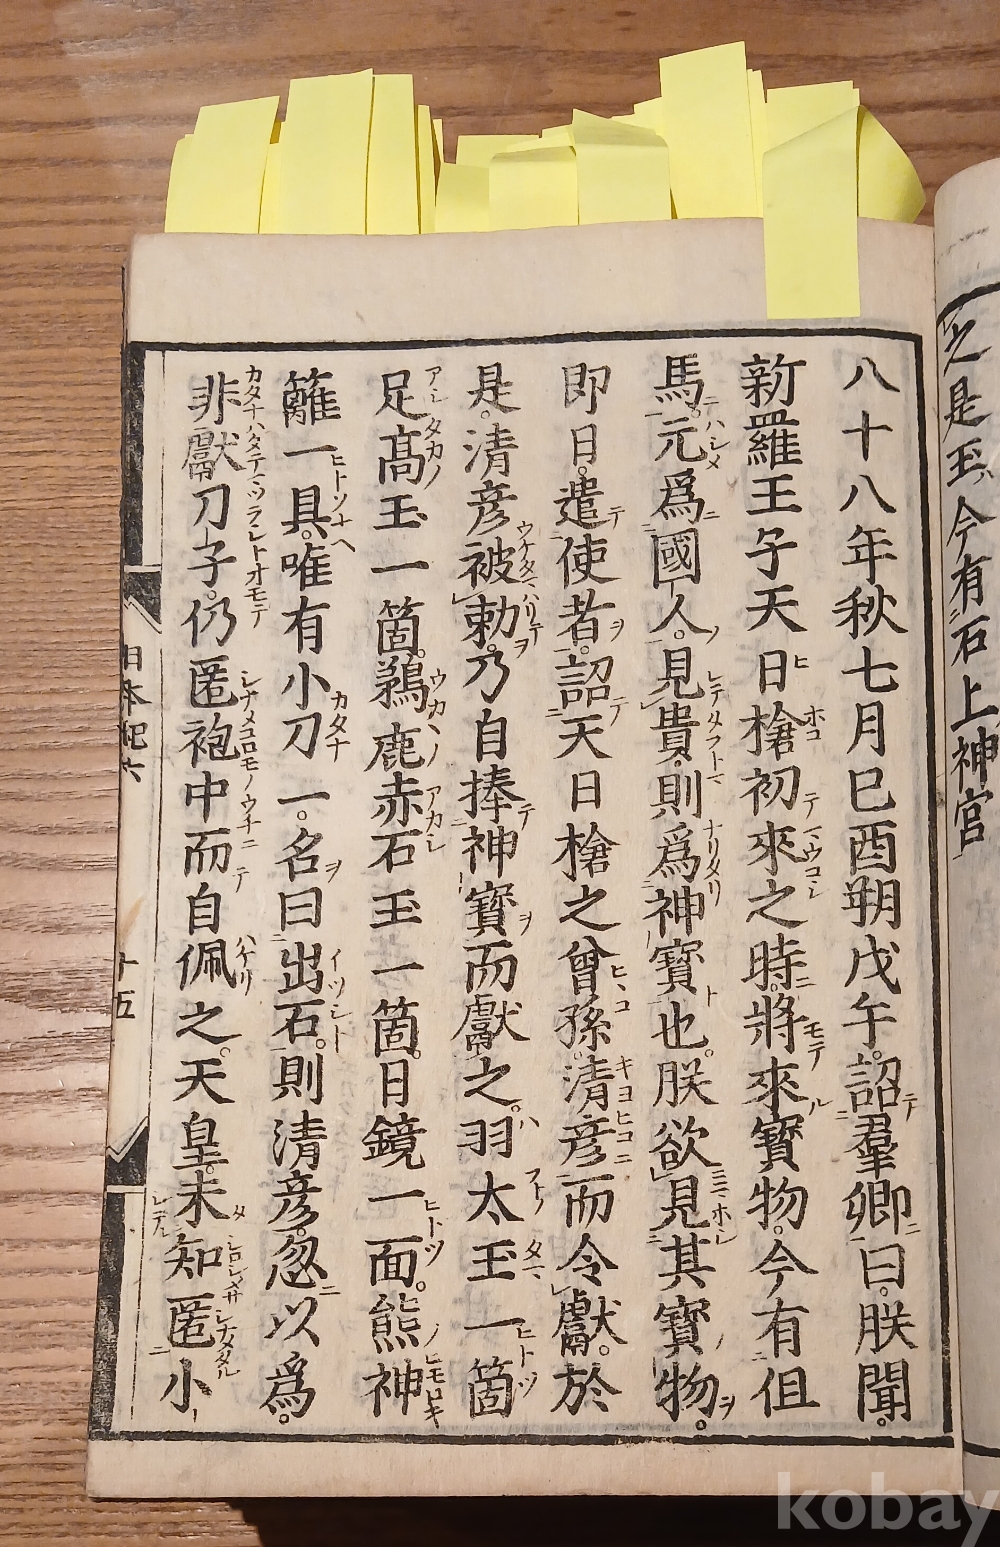 之是玉今有石上神宮
八十八年秋七月己酉朔戊午。詔羣卿曰。朕聞。
新羅王子天日槍初來之時。將來寶物。今有伹
馬。元爲國人。見貴。則爲神寶也。朕欲見其寶物。
即日。遣使者。詔天日槍之曾孫。清彦而令獻。於
是。清彦被勅。乃自捧神寶而獻之。羽太玉一箇
足高玉一箇。鵜鹿赤石玉一箇。日鏡一面。熊神
籬一具。唯有小刀一。名曰出石。則清彦。忽以爲。
非獻刀子。仍匿袍中而自佩之。天皇。未知匿小
日本紀六 十五
kobay